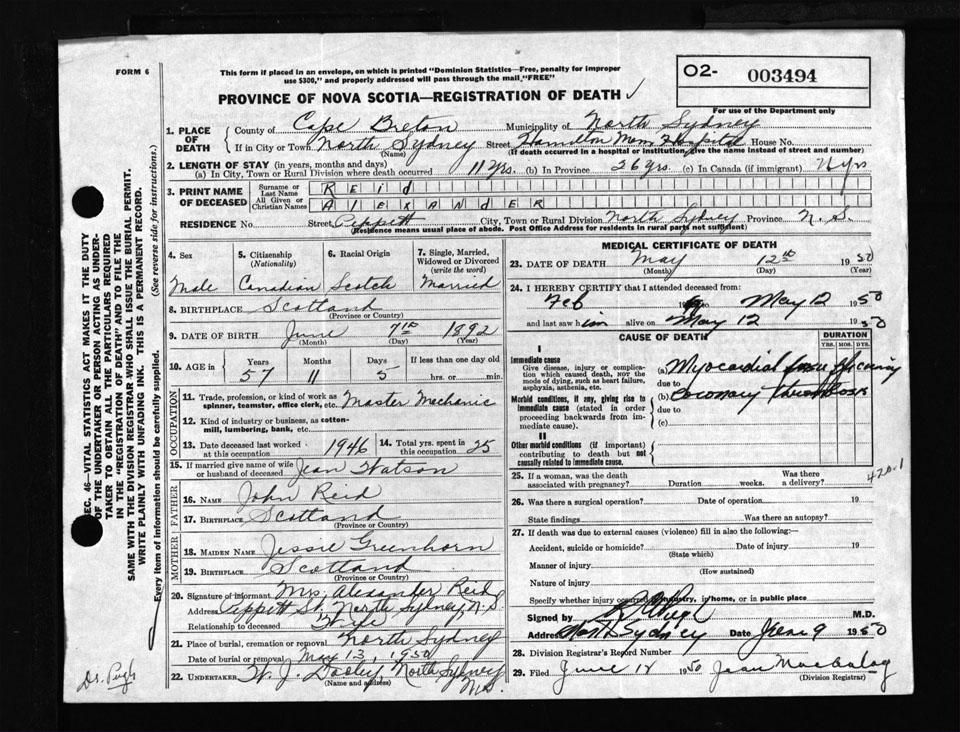 FORM 6
This form if placed in an envelope, on which is printed "Dominion Statistics—Free, penalty for improper
use $300," and properly addressed will pass through the mail "FREE"
02- 003494
PROVINCE OF NOVA SCOTIA—REGISTRATION OF DEATH
For use of the Department only
1. PLACE OF DEATH County of Cape Breton Municipality of North Sydney
If in City or Town North Sydney Street Hamilton Mem. Hospital House No.
(Name) (If death occurred in a hospital or institution, give the name instead of street and number)
2. LENGTH OF STAY (in years, months and days)
(a) In City, Town or Rural Division where death occurred 11 yrs. (b) In Province 26 yrs. (c) In Canada (if immigrant) yrs
3. PRINT NAME OF DECEASED Surname or Last Name REID
All Given or Christian Names ALEXANDER
RESIDENCE No. Street Peppett City, Town or Rural Division North Sydney Province N.S.
(Residence means usual place of abode. Post Office Address for residents in rural parts not sufficient)
4. Sex 5. Citizenship (Nationality) 6. Racial Origin 7. Single, Married, Widowed or Divorced (write the word)
Male Canadian Scotch Married
8. BIRTHPLACE Scotland
(Province or Country)
9. DATE OF BIRTH June 7th 1892
(Month) (Day) (Year)
10. AGE in Years Months Days If less than one day old
57 11 5 hrs. or min.
OCCUPATION
11. Trade, profession, or kind of work as spinner, teamster, office clerk, etc. Master Mechanic
12. Kind of industry or business, as cotton-mill, lumbering, bank, etc.
13. Date deceased last worked at this occupation 1946 14. Total yrs. spent in this occupation 25
15. If married give name of wife or husband of deceased Jean Watson
FATHER
16. NAME John Reid
17. BIRTHPLACE Scotland
(Province or Country)
MOTHER
18. MAIDEN NAME Jessie Greenhorn
19. BIRTHPLACE Scotland
(Province or Country)
20. Signature of informant Mrs. Alexander Reid
Address Peppett St. North Sydney, N.S.
Relationship to deceased Wife
21. Place of burial, cremation or removal North Sydney
Date of burial or removal May 13, 1950
22. UNDERTAKER W. J. Dooley, North Sydney N.S.
(Name and Address)
MEDICAL CERTIFICATE OF DEATH
23. DATE OF DEATH May 12th 1950
(Month) (Day) (Year)
24. I HEREBY CERTIFY that I attended deceased from:
Feb 19 to May 12 1950
and last saw him alive on May 12 1950
CAUSE OF DEATH DURATION
YRS. MOS. DYS.
I
Immediate cause
Give disease, injury or complication which caused death, NOT the mode of dying, such as heart failure, asphyxia, asthenia, etc.
(a) Myocardial
due to
Morbid conditions, if any, giving rise to immediate cause (stated in order proceeding backwards from immediate cause).
(b) Coronary thrombosis
due to
(c)
II
Other morbid conditions (if important) contributing to death but not causally related to immediate cause.
420.1
25. If a woman, was the death associated with pregnancy? Duration weeks. Was there a delivery?
26. Was there a surgical operation? Date of operation 19
State findings Was there an autopsy?
27. If death was due to external causes (violence) fill in also the following:
Accident, suicide or homicide? Date of injury 19
(State which)
Manner of injury
(How sustained)
Nature of injury
Specify whether injury occurred in industry, in home, or in public place
Signed by M.D.
Address North Sydney Date June 9 1950
28. Division Registrar's Record Number
29. Filed June 12 1950 Jean
(Division Registrar)
SEC. 46—VITAL STATISTICS ACT MAKES IT THE DUTY
OF THE UNDERTAKER OR PERSON ACTING AS UNDER-
TAKER TO OBTAIN ALL THE PARTICULARS REQUIRED
IN THE "REGISTRATION OF DEATH" AND TO FILE THE
SAME WITH THE DIVISION REGISTRAR WHO SHALL ISSUE THE BURIAL PERMIT.
WRITE PLAINLY WITH UNFADING INK. THIS IS A PERMANENT RECORD.
Every item of information should be carefully supplied. (See reverse side for instructions.)
Dr. Pugh